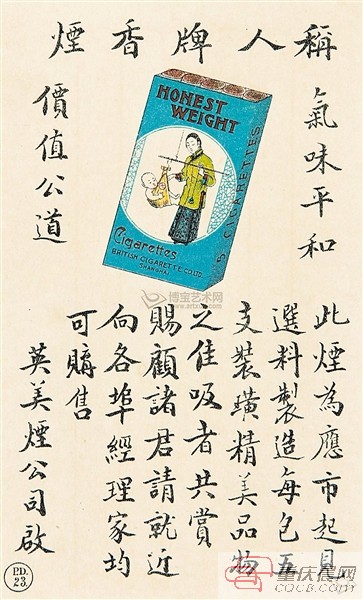 稱人牌香煙
氣味平和
價值公道
HONEST
WEIGHT
Cigarettes
BRITISH CIGARETTE CO. LTD.
SHANGHAI
5 CIGARETTES
此煙為應市起見
選料製造每包五
支裝璜精美品物
之佳吸者共賞
賜顧諸君請就近
向各埠經理家均
可購售
英美煙公司啟
P.D.
23
博宝艺术网
重庆晨网
COCB.COM